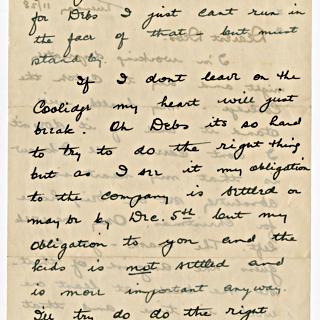 for Debs I just cant run in
the face of that - but must
stand by.
If I dont leave on the
Coolidge my heart will just
break. Oh Debs its so hard
to try to do the right thing
but as I see it my obligation
to the company is settled or
may be by Dec. 5th but my
obligation to you and the
kids is not settled and
is more important anyway.
I'll try do do the right